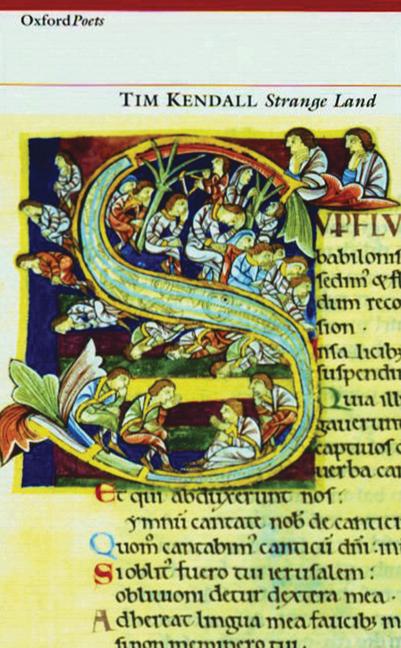 OxfordPoets
TIM KENDALL Strange Land
VPFLV
babilonis
sedim⁹
dum reco
sion ·
suspendi
Quia ill
gauerun
captiuos
uerba can
Et qui abduxerunt nos :
ymnū cantate nob de cantici
Quom̄ cantabim⁹ canticū dn̄i · in
Si oblit⁹ fuero tui ierusalem :
obliuioni detur dextera mea ·
Adhereat lingua mea faucib; m
si non meminero tui ·